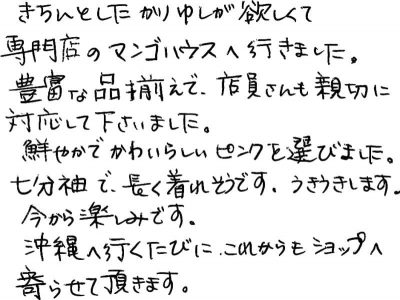 きちんとしたかりゆしが欲しくて
専門店のマンゴハウスへ行きました。
豊富な品揃えで、店員さんも親切に
対応して下さいました。
鮮やかでかわいらしいピンクを選びました。
七分袖で、長く着れそうです。うきうきします。
今から楽しみです。
沖縄へ行くたびに、これからもショップへ
寄らせて頂きます。